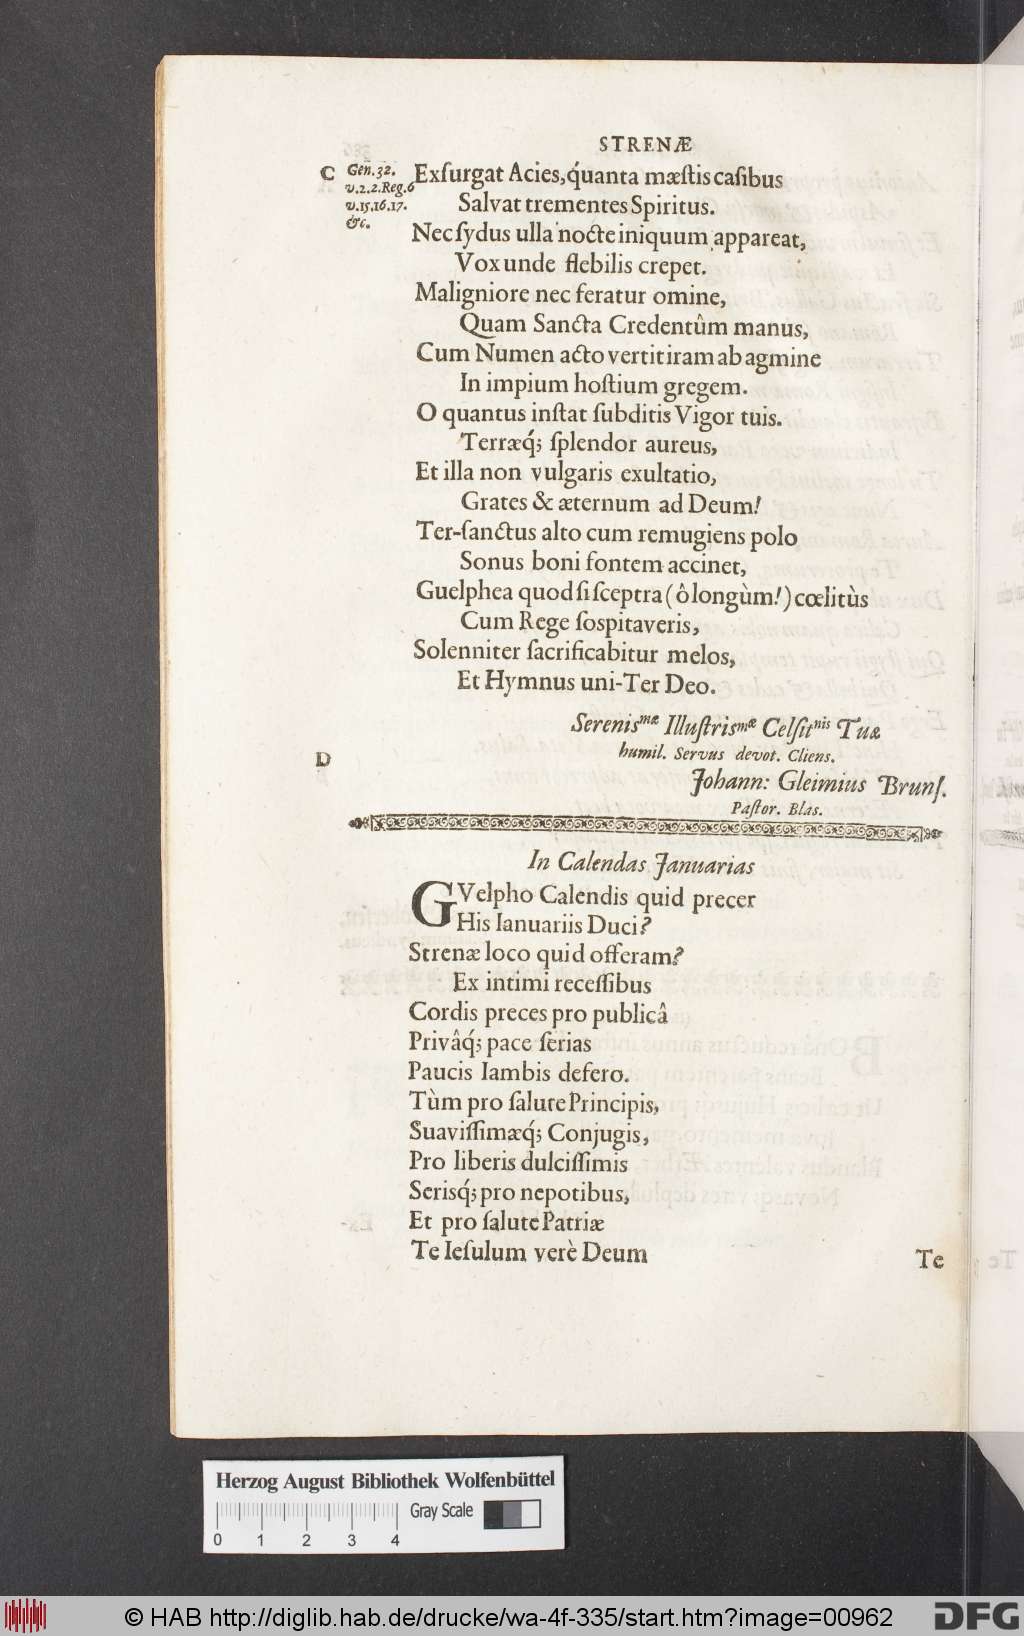 STRENÆ
C
Gen. 32.
v. 2. 2. Reg. 6
v. 15. 16. 17.
&c.
Exſurgat Acies, q́uanta mæſtis caſibus
Salvat trementes Spiritus.
Nec ſydus ulla nocte iniquum appareat,
Vox unde flebilis crepet.
Maligniore nec feratur omine,
Quam Sancta Credentûm manus,
Cum Numen acto vertit iram ab agmine
In impium hoſtium gregem.
O quantus inſtat ſubditis Vigor tuis.
Terræq́; ſplendor aureus,
Et illa non vulgaris exultatio,
Grates & æternum ad Deum!
Ter-ſanctus alto cum remugiens polo
Sonus boni fontem accinet,
Guelphea quod ſi ſceptra (ô longùm!) cœlitùs
Cum Rege ſoſpitaveris,
Solenniter ſacrificabitur melos,
Et Hymnus uni-Ter Deo.
Serenisᵐᵃᵉ Illuſtrisᵐᵃᵉ Celſitⁿⁱˢ Tuæ
humil. Servus devot. Cliens.
D
Johann: Gleimius Brunſ.
Paſtor. Blas.
In Calendas Januarias
GVelpho Calendis quid precer
His Ianuariis Duci?
Strenæ loco quid offeram?
Ex intimi receſſibus
Cordis preces pro publicâ
Privâq́; pace ſerias
Paucis Iambis defero.
Tùm pro ſalute Principis,
Suaviſſimæq́; Conjugis,
Pro liberis dulciſſimis
Serisq́; pro nepotibus,
Et pro ſalute Patriæ
Te Ieſulum verè Deum
Te
Herzog August Bibliothek Wolfenbüttel
Gray Scale
0 1 2 3 4
© HAB http://diglib.hab.de/drucke/wa-4f-335/start.htm?image=00962
DFG